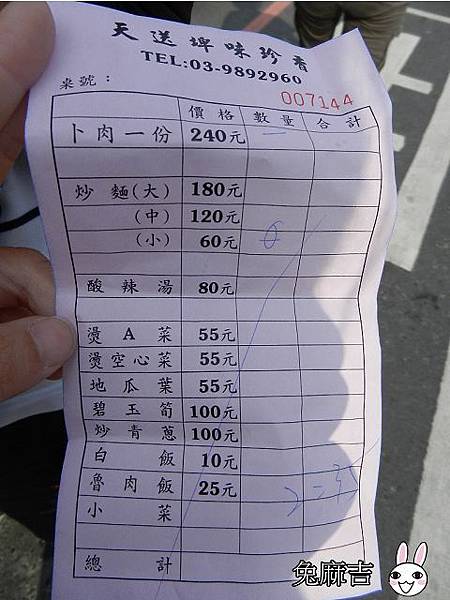 天送埤味珍香
TEL:03-9892960
桌號：
007144
價格 數量 合計
卜肉一份 240元 一
炒麵(大) 180元
(中) 120元
(小) 60元
酸辣湯 80元
燙A菜 55元
燙空心菜 55元
地瓜葉 55元
碧玉筍 100元
炒青蔥 100元
白飯 10元
魯肉飯 25元
小菜
總計
兔麻吉